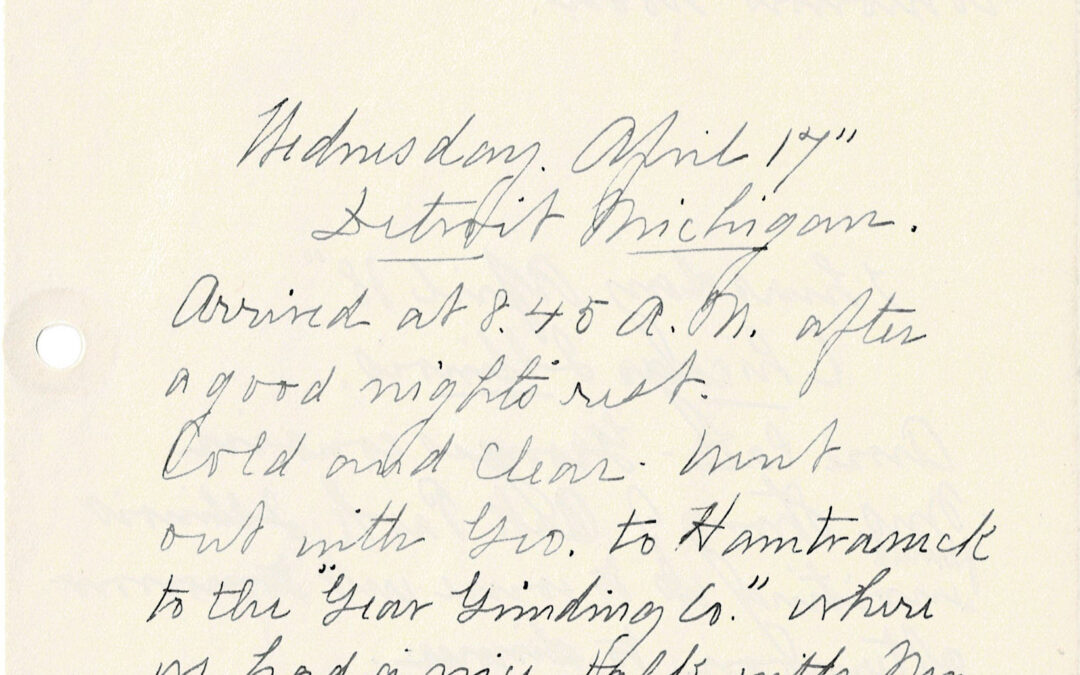 Wednesday. April 17"
Detroit Michigan.
Arrived at 8.45 A. M. after
a good nights rest.
Cold and clear. Went
out with Geo. to Hamtramck
to the "Gear Grinding Co." where
we had a nice talk with Mr